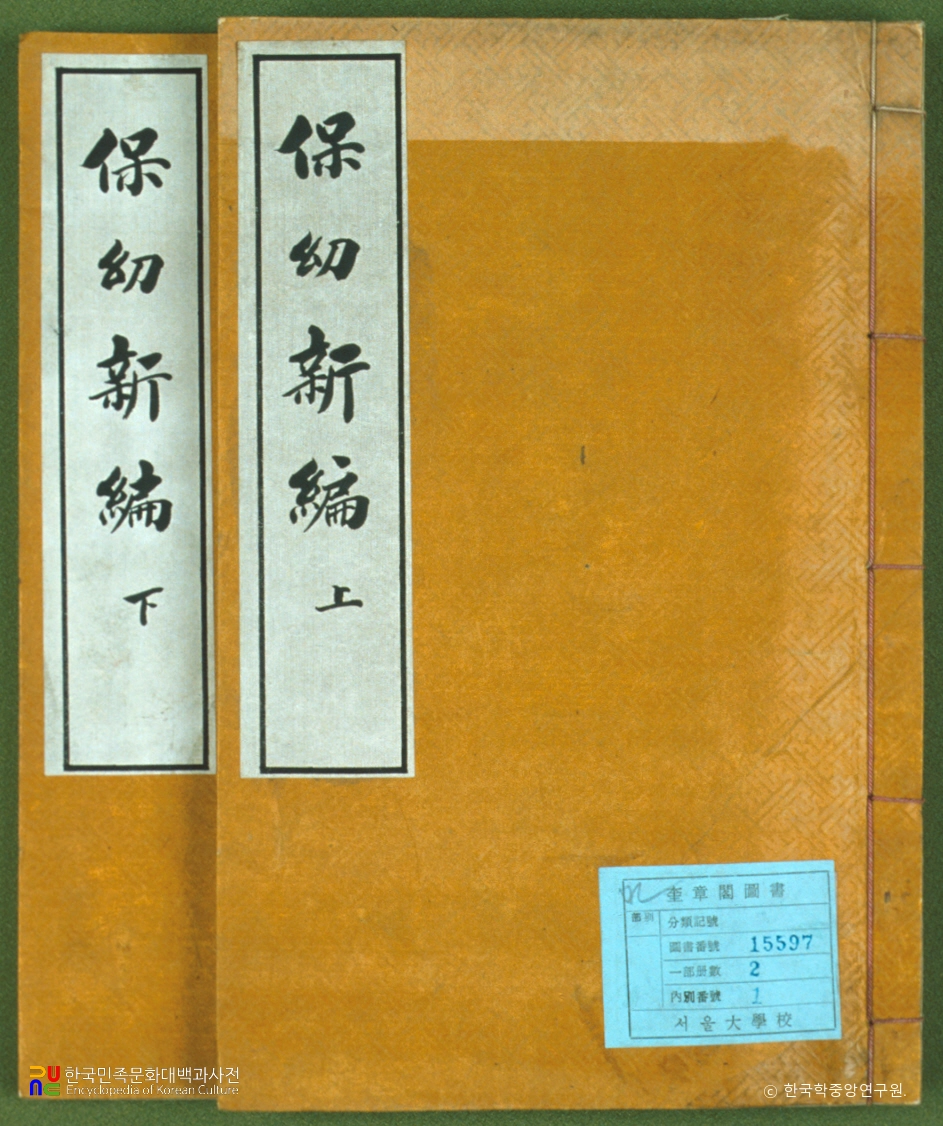 保幼新編 上
保幼新編 下
奎章閣圖書
部別
分類記號
圖書番號 15597
一部册數 2
內別番號 1
서울大學校
한국민족문화대백과사전
Encyclopedia of Korean Culture
© 한국학중앙연구원.